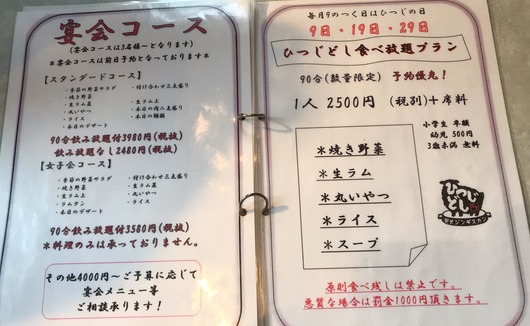 宴会コース
(宴会コースは3名様～となります)
*宴会コースは前日予約となっております*
【スタンダードコース】
・季節の野菜サラダ ・付け合わせ三点盛り
・焼き野菜
・生ラム上 ・生ラム
・生ラム肩 ・本日の肉二点盛り
・丸いやつ ・本日の麺類
・ライス
・本日のデザート
90分飲み放題付3980円(税抜)
飲み放題なし2480円(税抜)
【女子会コース】
・季節の野菜サラダ ・付け合わせ三点盛り
・焼き野菜 ・生ラム肩
・生ラム上 ・丸いやつ
・ラムタン ・ライス
・本日のデザート
90分飲み放題付3580円(税抜)
*料理のみは承っておりません。
その他4000円～ご予算に応じて
宴会メニュー等
ご相談承ります！
毎月9のつく日はひつじの日
9日・19日・29日
ひつじどし食べ放題プラン
90分(数量限定) 予約優先！
1人 2500円 (税別)+席料
小学生 半額
幼児 500円
3歳未満 無料
*焼き野菜
*生ラム
*丸いやつ
*ライス
*スープ
ひつじどし
生ジンギスカン
原則食べ残しは禁止です。
悪質な場合は罰金1000円頂きます。